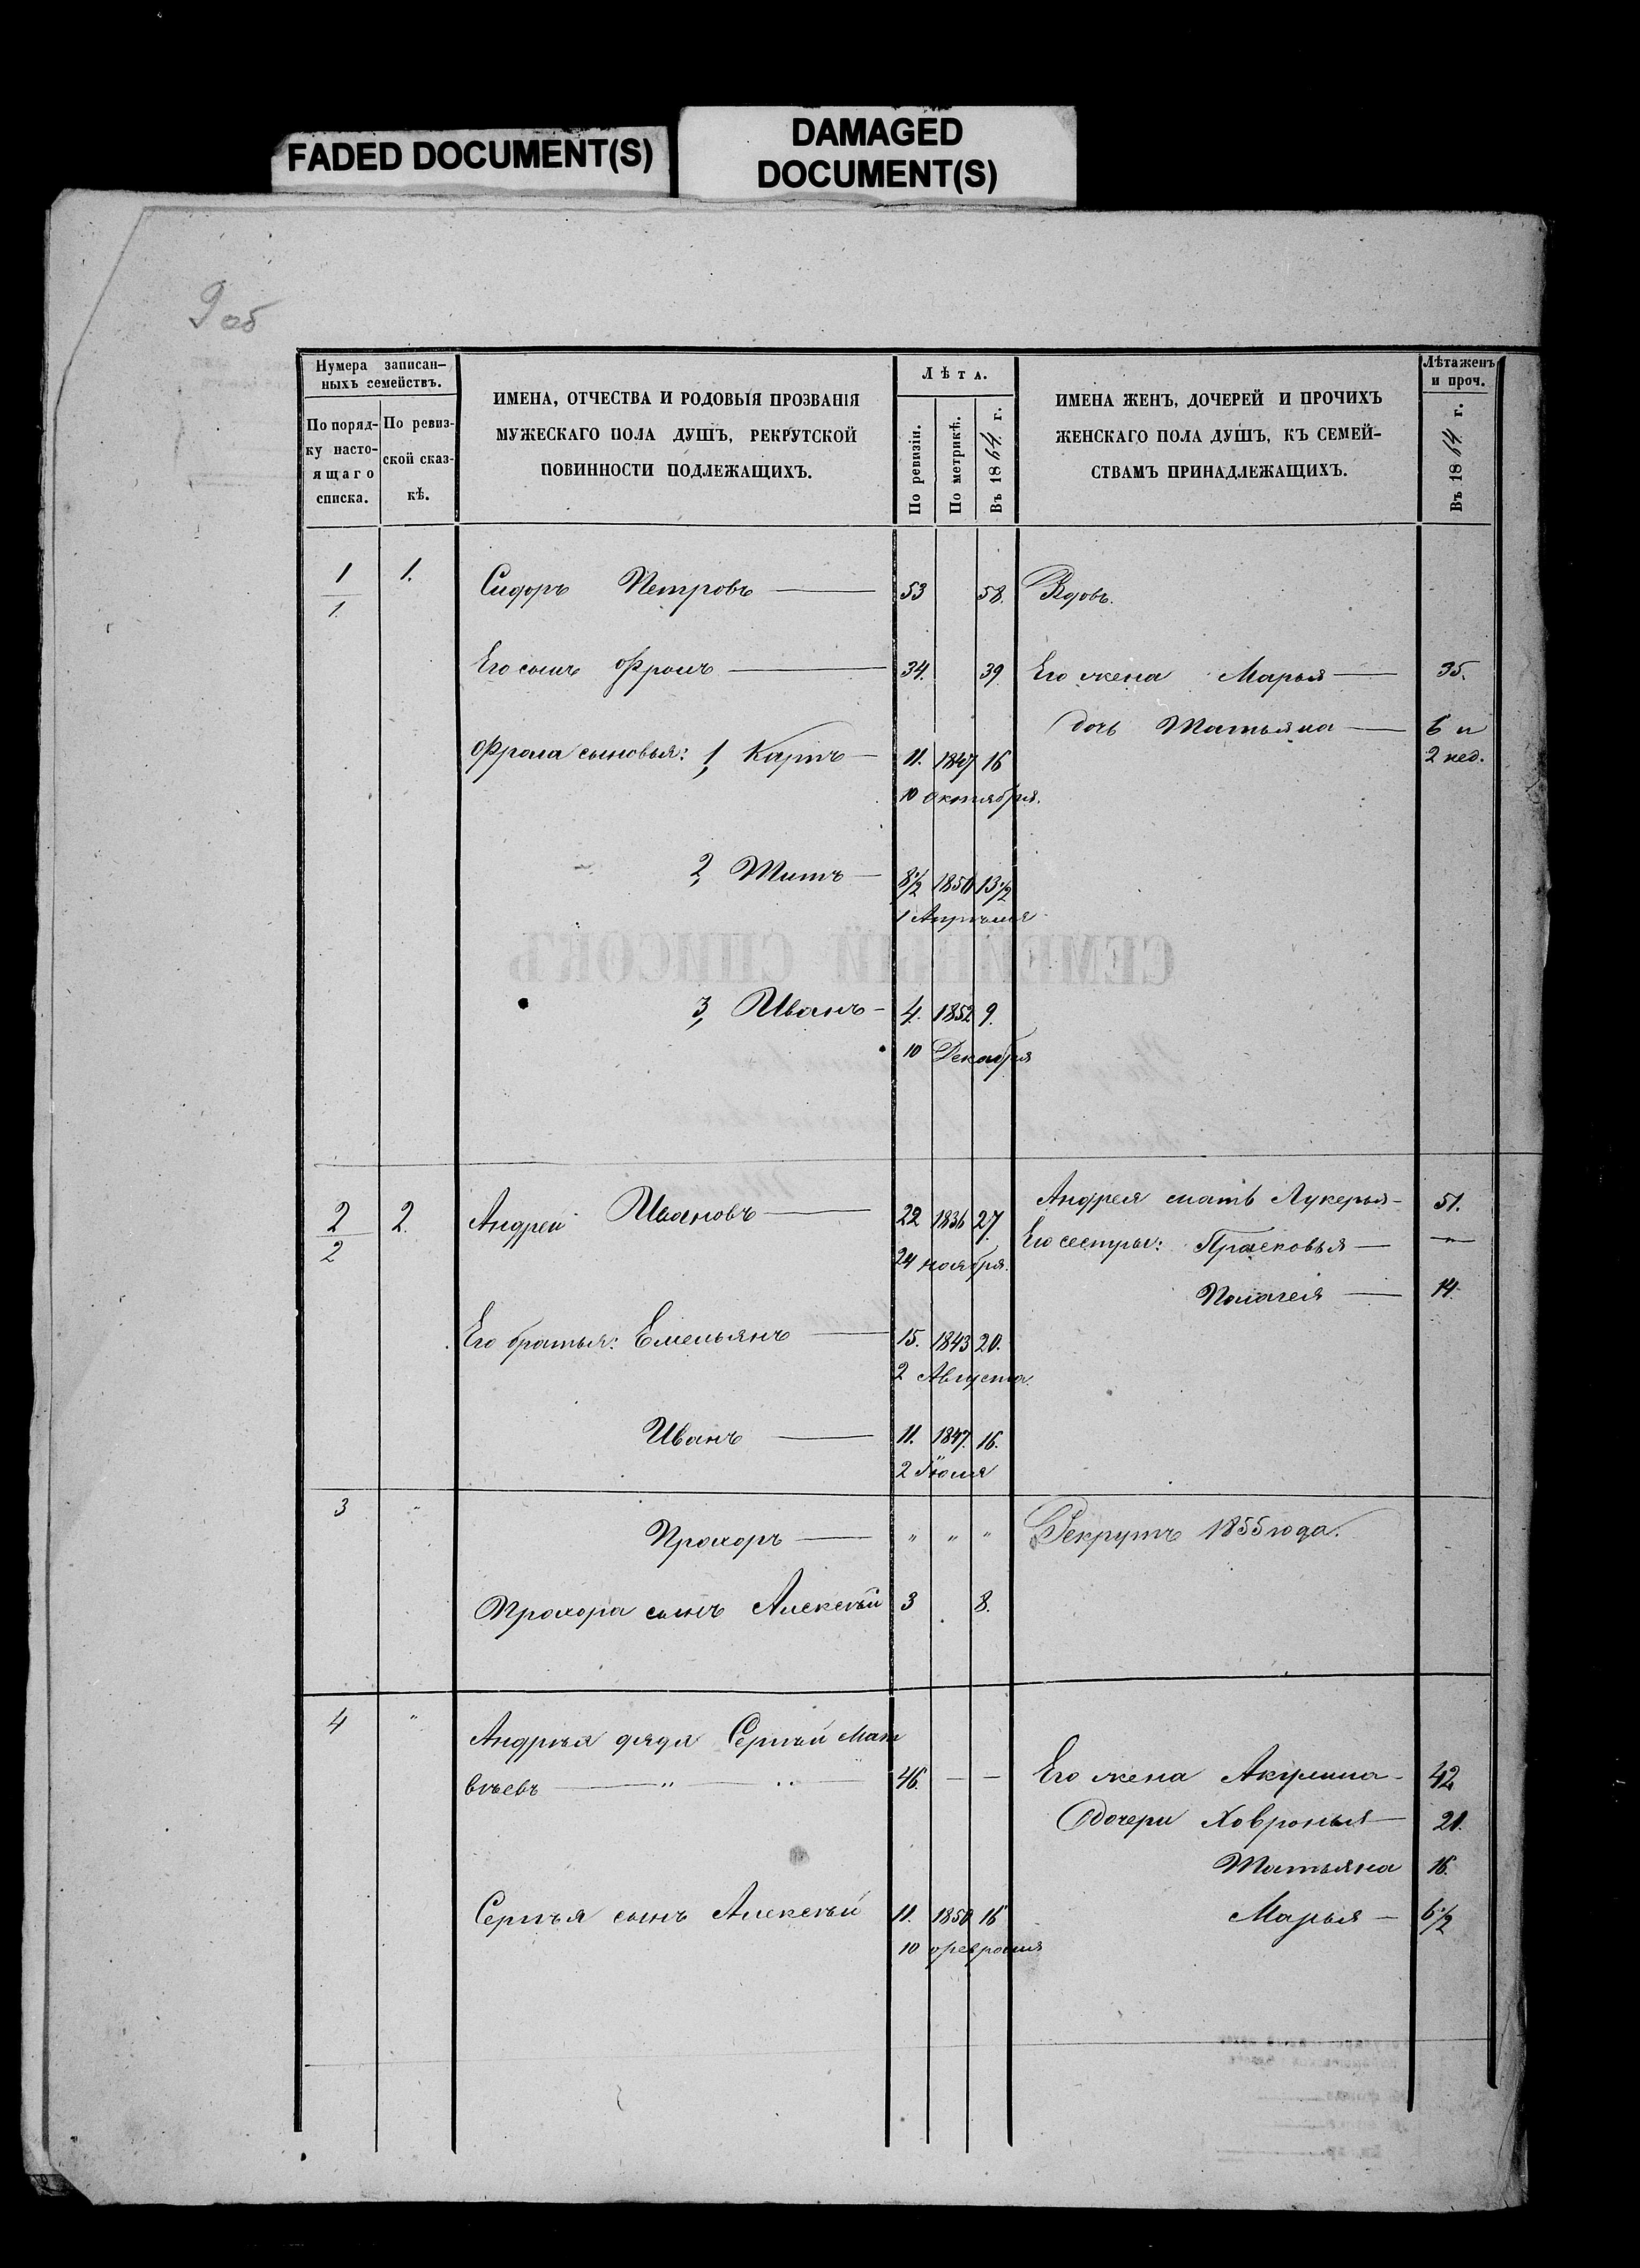 FADED DOCUMENT(S)
DAMAGED
DOCUMENT(S)
9 об
Нумера записан-
ныхъ семействъ.
По поряд-
ку насто-
ящаго
списка.
По ревиз-
ской сказ-
кѣ.
ИМЕНА, ОТЧЕСТВА И РОДОВЫЯ ПРОЗВАНІЯ
МУЖЕСКАГО ПОЛА ДУШЪ, РЕКРУТСКОЙ
ПОВИННОСТИ ПОДЛЕЖАЩИХЪ.
Лѣта.
По ревизіи.
По метрикѣ.
Въ 1864 г.
ИМЕНА ЖЕНЪ, ДОЧЕРЕЙ И ПРОЧИХЪ
ЖЕНСКАГО ПОЛА ДУШЪ, КЪ СЕМЕЙ-
СТВАМЪ ПРИНАДЛЕЖАЩИХЪ.
Лѣта женъ
и проч.
Въ 1864 г.
1 1. Сидоръ Петровъ — 53 58. Вдовъ.
1.
Его сынъ Фролъ — 34. 39 Его жена Марья — 35.
дочь Татьяна — 6 и
Фрола сыновья: 1, Карпъ — 11. 1847 16 2 нед.
10 Октября.
2, Титъ — 8½ 1850 13½
1 Апрѣля
СЕМЕЙНЫЙ СПИСОКЪ
3, Иванъ - 4. 1852 9.
10 Декабря
2 2. Андрей Ивановъ — 22 1836 27. Андрея мать Лукерья - 51.
2 24 ноября. Его сестры: Прасковья — —"—
Пелагея — 14.
Его братья: Емельянъ — 15. 1843 20.
2 Августа.
Иванъ — 11. 1847. 16.
2 Іюля
3 " Прохоръ — " " " Рекрутъ 1855 года.
Прохора сынъ Алексѣй 3 8.
4 " Андрѣя дядя Сергѣй Мат
вѣевъ — " — " — 46. — — Его жена Акулина - 42
дочери Ховронья — 21.
Татьяна 16.
Сергѣя сынъ Алексѣй 11. 1850 16 Марья — 6½
10 февраля